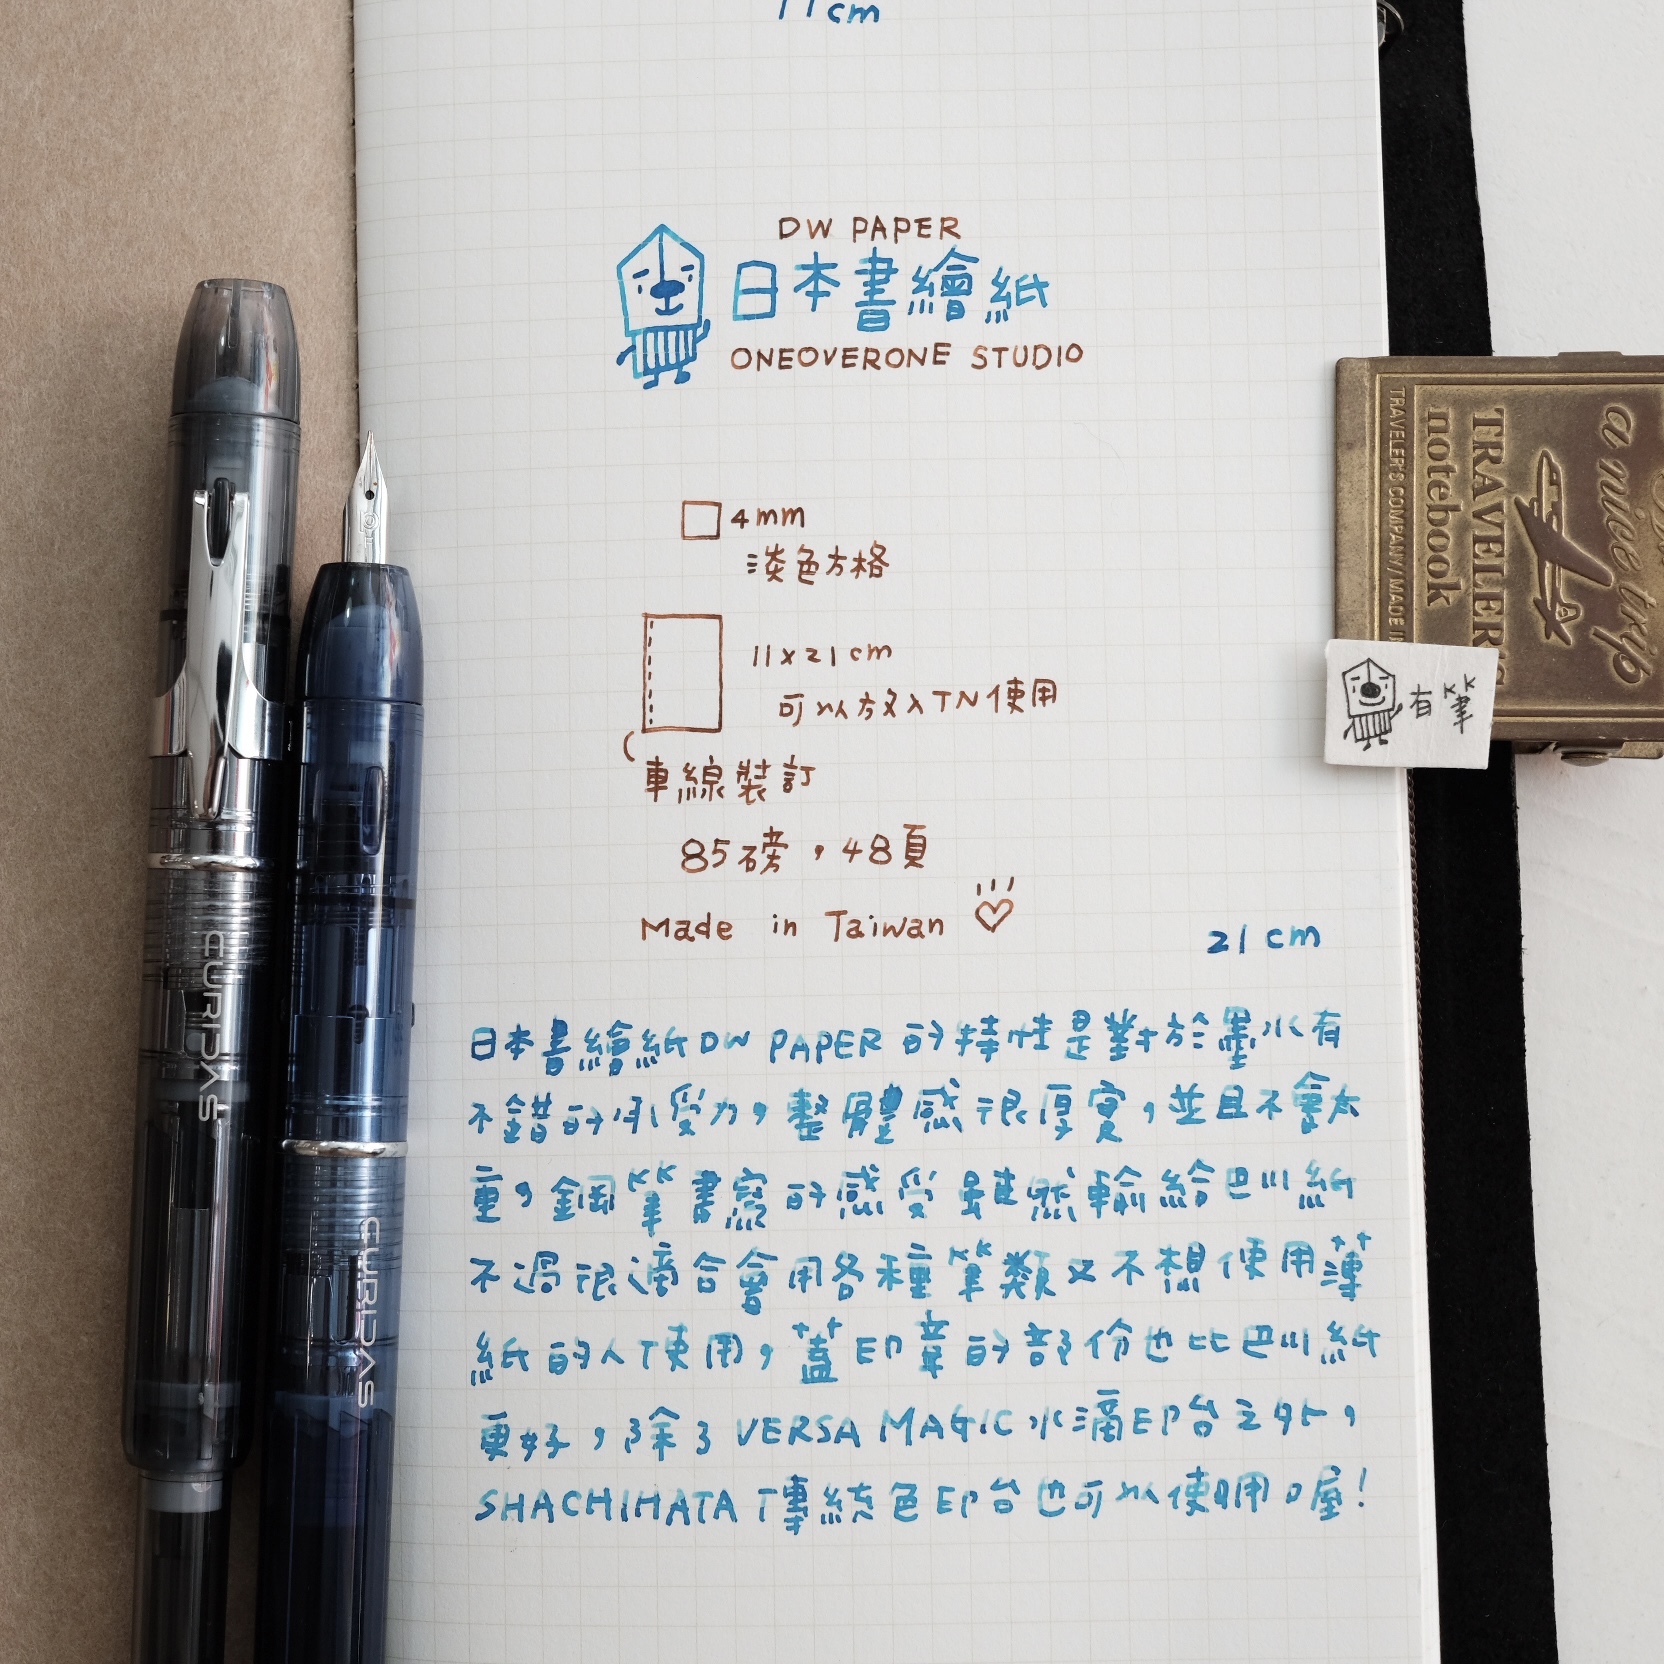 11cm
DW PAPER
日本書繪紙
ONEOVERONE STUDIO
4mm
淡色方格
11x21cm
可以放入TN使用
車線裝訂
85磅，48頁
Made in Taiwan
21cm
日本書繪紙DW PAPER的特性是對於墨水有
不錯的承受力，整體感很厚實，並且不會太
重，鋼筆書寫的感受雖然輸給巴川紙
不過很適合會用各種筆類又不想使用薄
紙的人使用，蓋印章的部份也比巴川紙
更好，除了VERSA MAGIC水滴印台之外，
SHACHIHATA傳統色印台也可以使用喔！
CURIDAS
CURIDAS
a nice trip
TRAVELER'S
notebook
TRAVELER'S COMPANY / MADE I
有筆